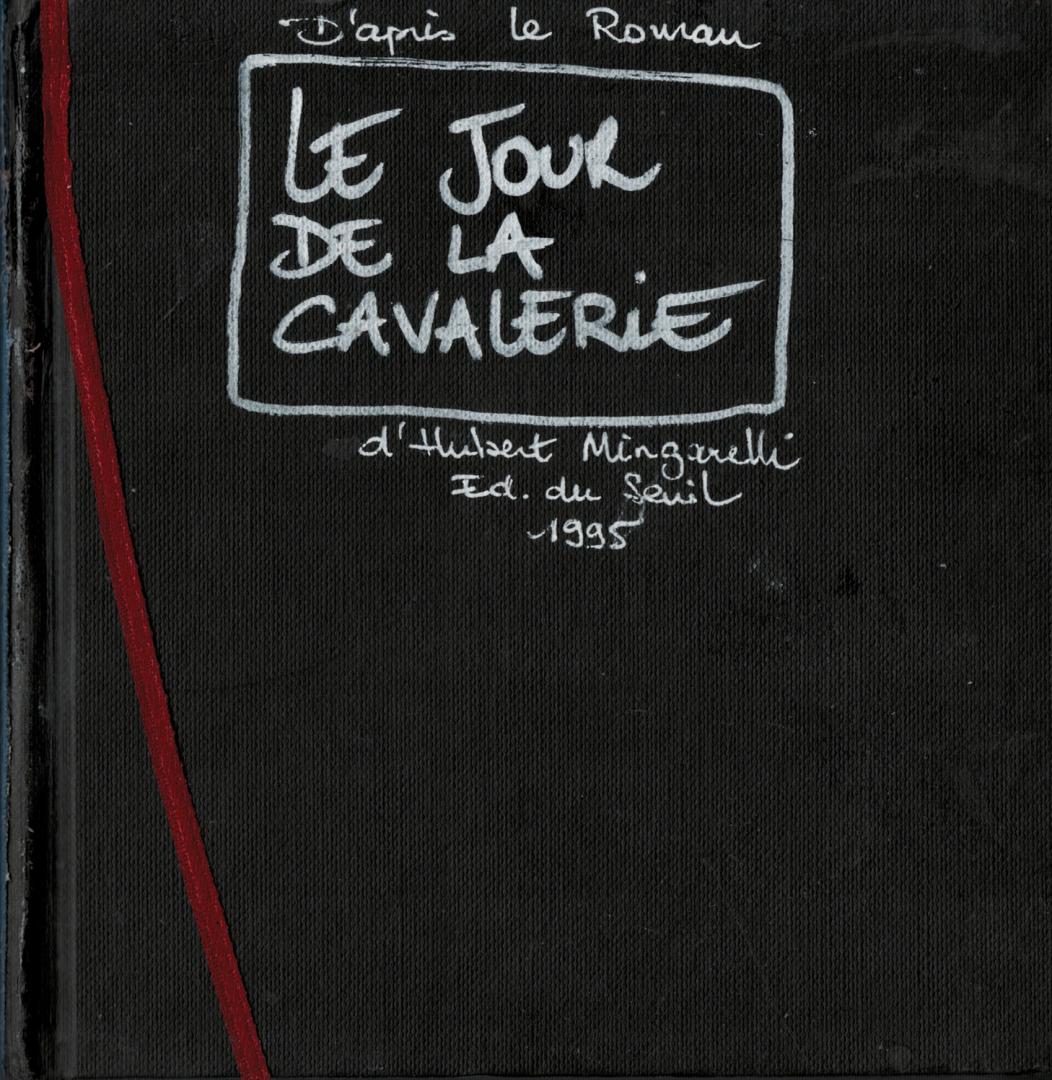 D'après le Roman
LE JOUR
DE LA
CAVALERIE
d'Hubert Mingarelli
Ed. du Seuil
1995